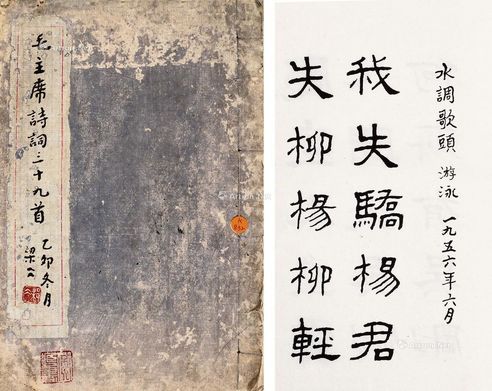 毛主席詩詞三十九首
乙卯冬月
梁
水調歌頭 游泳 一九五六年六月
我失驕楊君
失柳楊柳輕